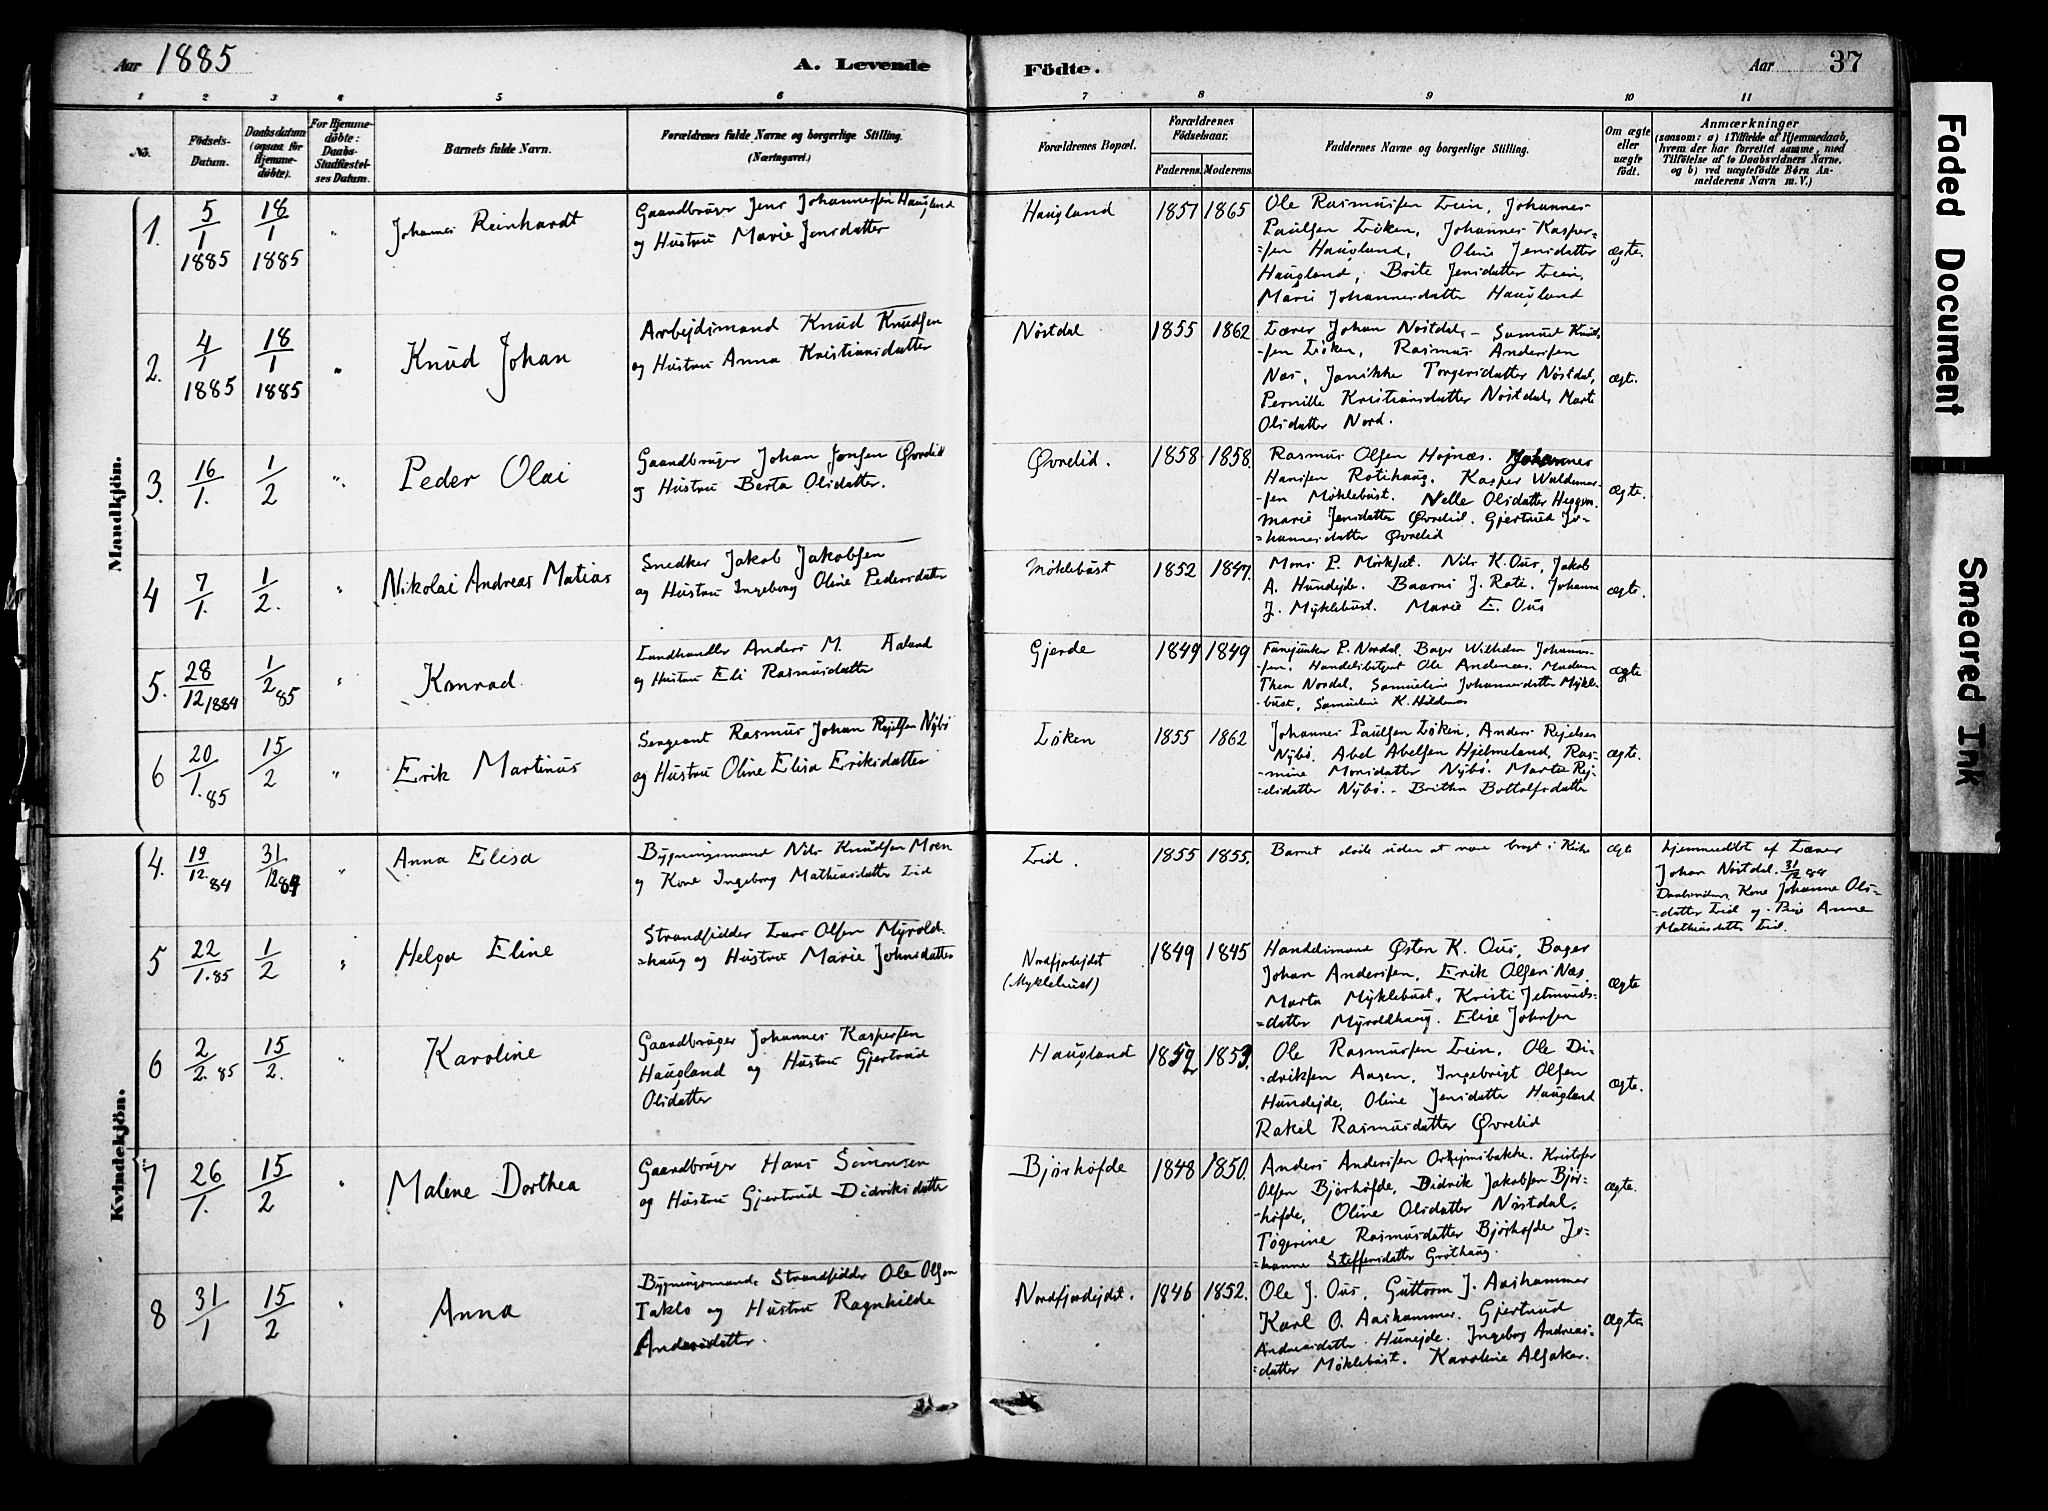 Aar 1885 A. Levende Födte. Aar 37
1 2 3 4 5 6 7 8 9 10 11
No.
Födsels-
Datum.
Daabsdatum
(ogsaa for
Hjemme-
døbte).
For Hjemme-
døbte:
Daabs-
Stadfæstel-
ses Datum.
Barnets fulde Navn.
Forældrenes fulde Navne og borgerlige Stilling.
(Næringsvei.)
Forældrenes Bopæl.
Forældrenes
Födselsaar.
Faderens. Moderens.
Faddernes Navne og borgerlige Stilling.
Om ægte
eller
uægte
født.
Anmærkninger
(saasom: a) i Tilfælde af Hjemmedaab,
hvem der har forrettet samme, med
Tilföielse af to Daabsvidners Navne.
og b) ved uægtefödte Børn An-
melderens Navn m. V.)
Mandkjön.
1. 5/1 1885 18/1 1885 " Johannes Reinhardt
Gaardbrüger Jens Johannessen Haugland
og Hustru Marie Jensdatter
Haugland 1857 1865
Ole Rasmussen Lein, Johannes
Paulsen Løken, Johannes Kasper-
=sen Haugland, Oline Jensdatter
Haugland, Brite Jensdatter Lein,
Marie Johannesdatter Haugland
ægte.
2. 4/1 1885 18/1 1885 " Knud Johan
Arbejdsmand Knud Knudsen
og Hustru Anna Kristiansdatter
Nøstdal 1855 1862
Lærer Johan Nøstdal, Samuel Knud-
-sen Løken, Rasmus Andersen
Næs, Janikke Torgersdatter Nøstdal,
Pernille Kristiansdatter Nøstdal, Marte
Olsdatter Nord.
ægte.
3. 16/1. 1/2 " Peder Olai
Gaardbrüger Johan Jonsen Øvrelid
og Hustru Berta Olsdatter.
Øvrelid. 1858 1858.
Rasmus Olsen Hojnæs. Johannes
Hansen Rotehaug. Kasper Waldemar-
-sen Møklebust. Nelle Olsdatter
Marie Jensdatter Øvrelid. Gjertrud Jo-
=hannesdatter Øvrelid
ægte.
4 7/1. 1/2. " Nikolai Andreas Matias
Snedker Jakob Jakobsen
og Hustru Ingeborg Oline Pedersdatter
Møklebust 1852 1847.
Mons P. Mørkjut. Nils K. Ous, Jakob
A. Hundejde. J. Rote. Johanne
J. Myklebust. Marie E. Ous
ægte.
5. 28/12 1884 1/2 85 " Konrad.
Landhandler Anders M. Aaland
og Hustru Eli Rasmusdatter
Gjerde 1849 1849
Fanejunker P. Nordal. Bager Wilhelm Johannes-
-sen, Handelsbetjent Ole Andenæs, Madam
Thea Nordal, Samueline Johannesdatter Mykle-
-bust, Samueline K. Hildenes
ægte
6 20/1. 85 15/2 " Erik Martinus
Sergeant Rasmus Johan Rejelsen Nybø
og Hustru Oline Elisa Eriksdatter
Løken 1855 1862
Johannes Paulsen Løken, Anders Rejelsen
Nybø. Abel Abelsen Hjelmeland, Ras-
-mine Monsdatter Nybø. Marte Rej-
=elsdatter Nybø. - Brithe Bottolfsdatter
ægte.
Kvindekjön.
4. 19/12. 84 31/12 84 " Anna Elisa
Bygningsmand Nils Knudsen Moen
og Kone Ingeborg Mathiasdatter Lid
Lid. 1855 1855.
Barnet døde uden at være bragt i Kirke
ægte
hjemmedøbt af Lærer
Johan Nøstdal. 31/12 84
Daabsvidner, Kone Johanne Ols-
=datter Lid og Pige Anne
Mathiasdatter Lid.
5 22/1. 85 1/2 " Helga Eline
Strandsidder Lars Olsen Myrold-
=haug og Hustru Marie Johnsdatter
Nordfjordejdet
(Myklebust)
1849 1845
Handelsmand Østen K. Ous, Bager
Johan Andersen, Erik Olsen Næs
Marta Myklebust, Kristi Jetmunds-
=datter Myroldhaug. Elise Johnsen
ægte
6 2/2. 85 15/2. " Karoline
Gaardbrüger Johannes Kaspersen
Haugland og Hustru Gjertrud
Olsdatter
Haugland 1852 1853.
Ole Rasmussen Lein. Ole Di-
-driksen Aasen, Ingebrigt Olsen
Hundejde, Oline Jensdatter Haugland
Rakel Rasmusdatter Øvrelid
ægte.
7 26/1. 15/2 " Malene Dorthea
Gaardbrüger Hans Simonsen
og Hustru Gjertrud Didriksdatter
Bjørhofde 1848 1850.
Anders Andersen Kristofer
Olsen Bjørhofde, Didrik Jakobsen Bjør-
-hofde, Oline Olsdatter Nøstdal,
Tøgerine Rasmusdatter Bjørhofde Jo-
=hanne Steffensdatter Grothaug.
ægte.
8 31/1 15/2 " Anna
Bygningsmand, Strandsidder Ole Olsen
Taklo og Hustru Ragnhilde
Andersdatter.
Nordfjordejdet. 1846 1852.
Ole J. Ous, Guttorm J. Aashammer
Karl O. Aashammer, Gjertrud
Andreasdatter Hunejde. Ingeborg Andreas-
=datter Møklebust. Karoline Alsaker.
ægte
Faded Document
Smeared Ink